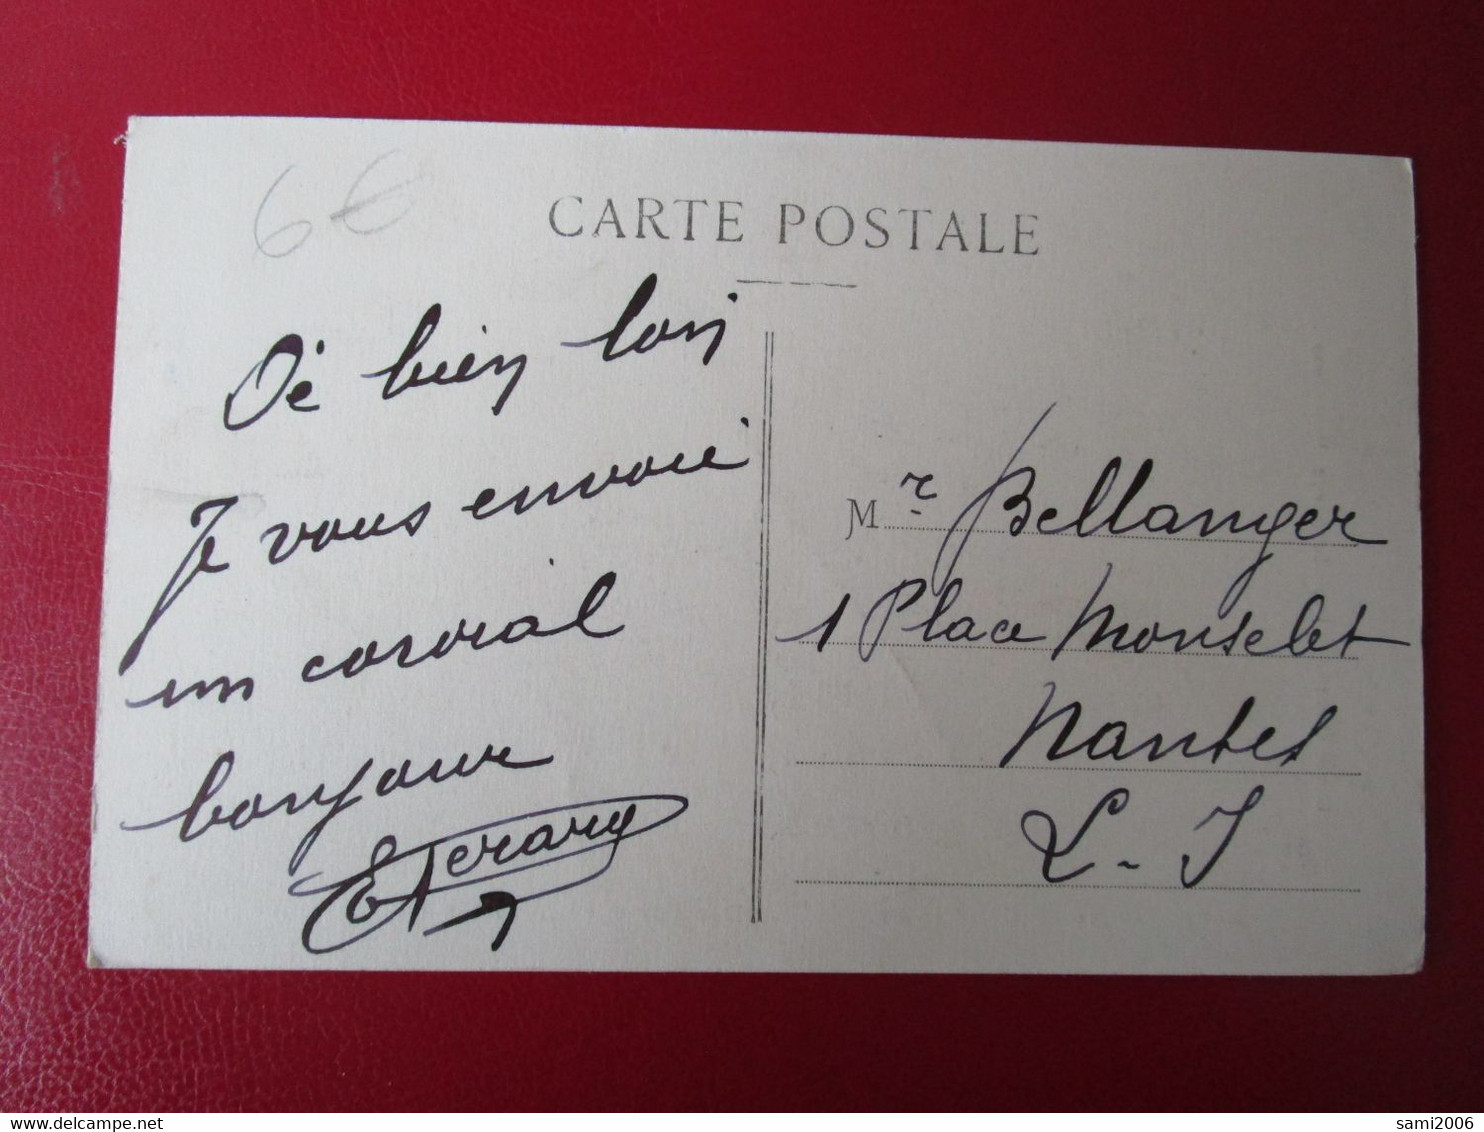 6€
CARTE POSTALE
Dé bien loin
Je vous envoie
un cordial
bonjour
Mr Bellanger
1 Place Monselet
Nantes
L-I
sami2006